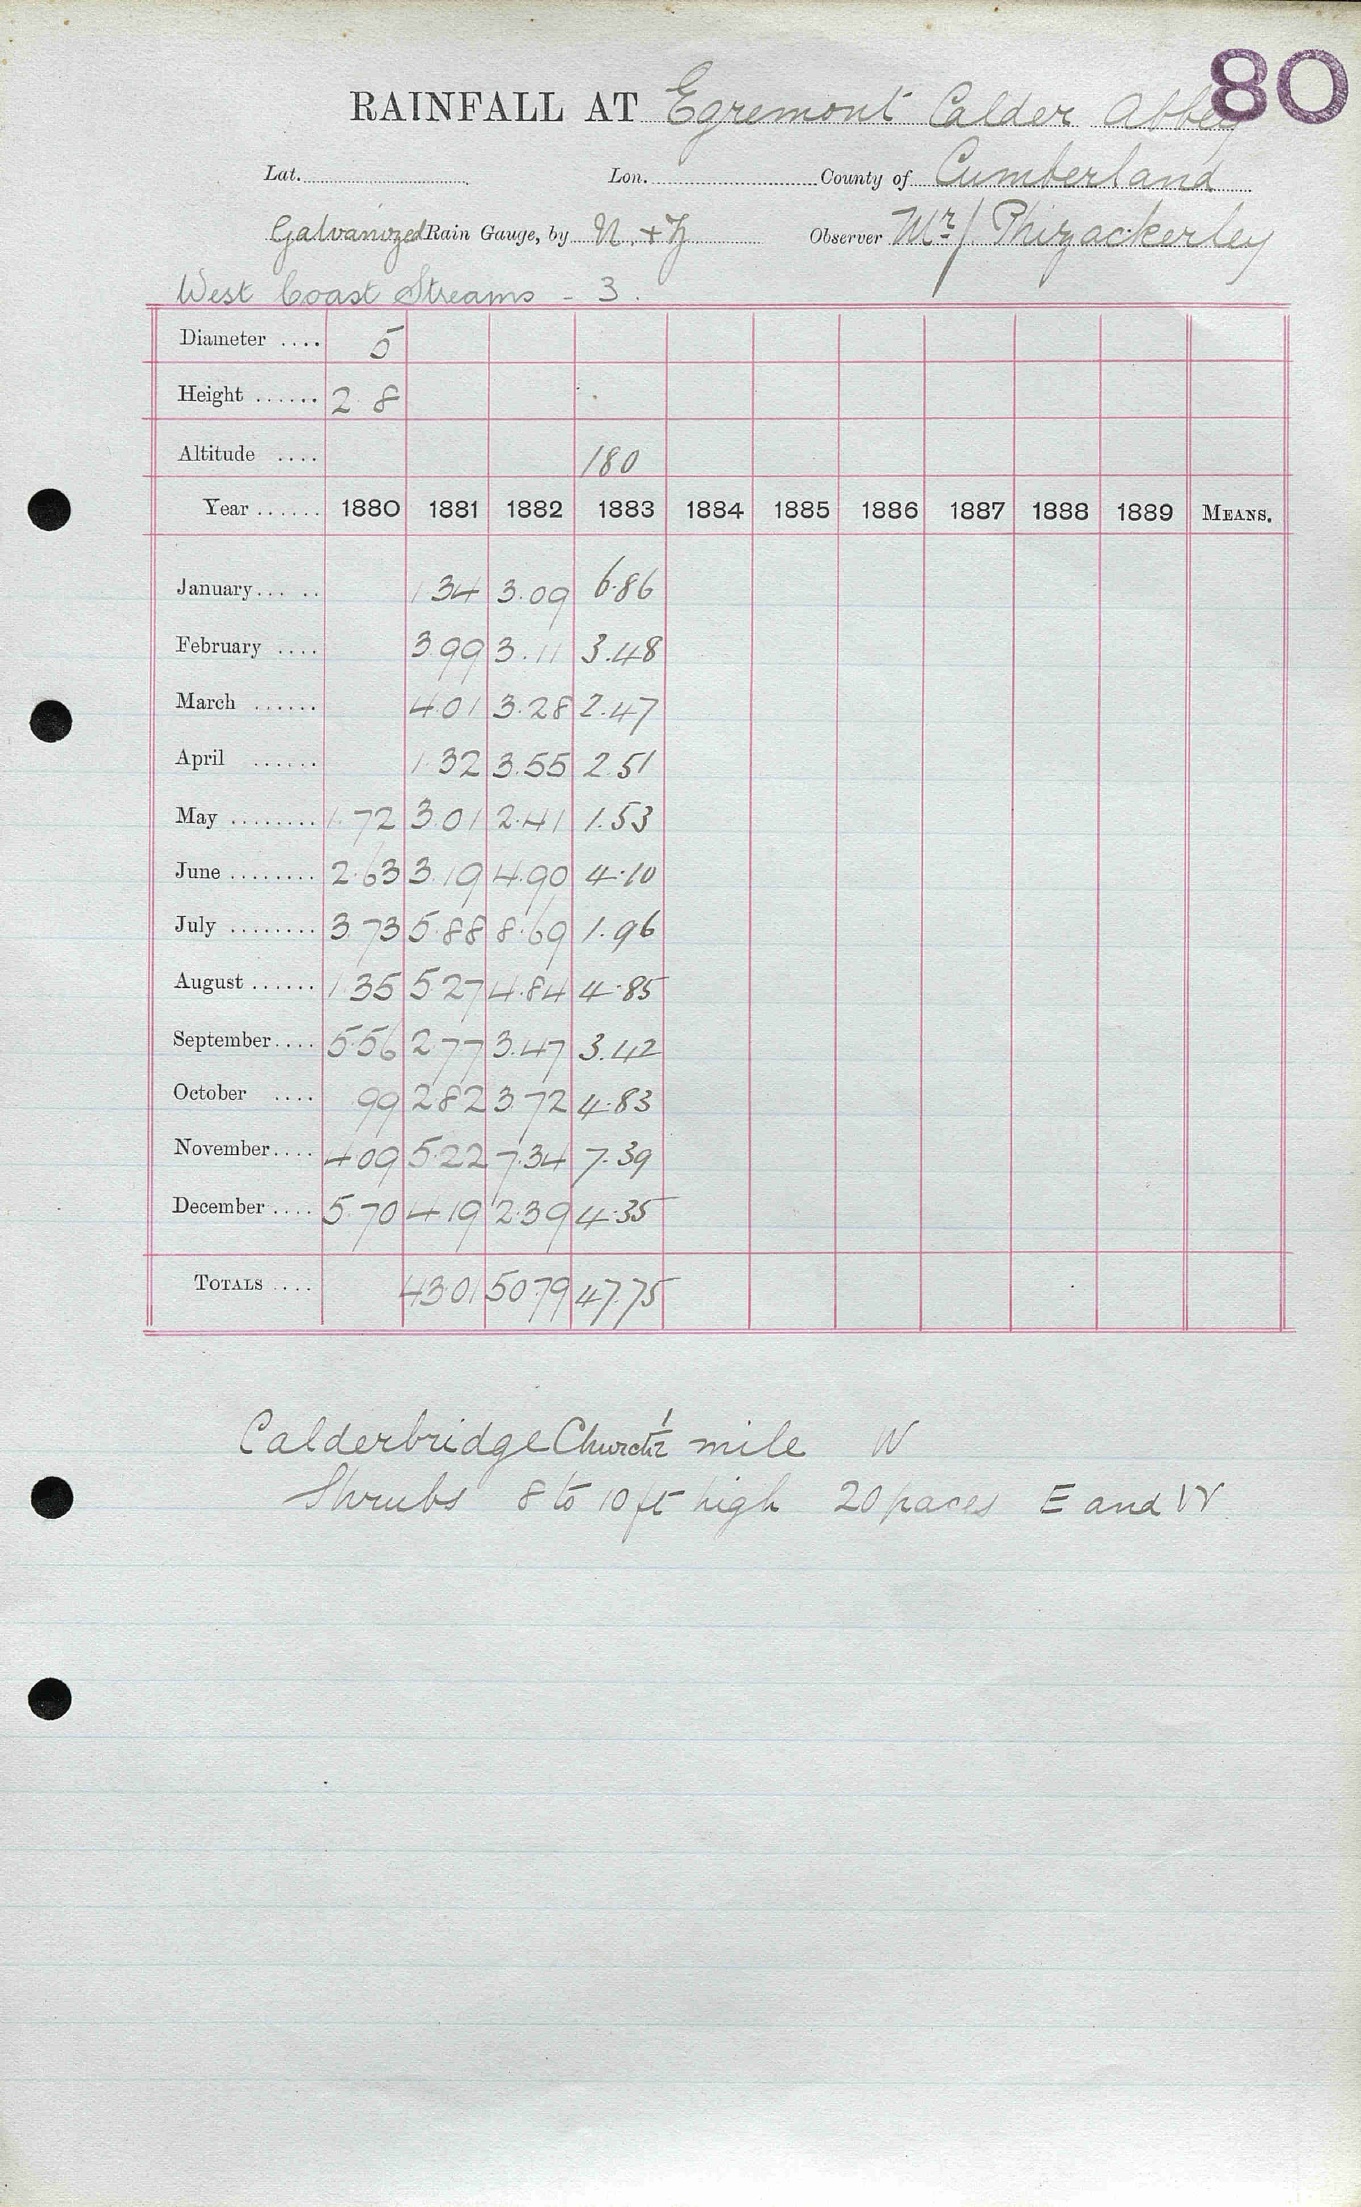 80
RAINFALL AT Egremont Calder Abbey
Lat. Lon. County of Cumberland
Galvanized Rain Gauge, by N. + Z Observer Mr J Phizackerley
West Coast Streams - 3.
Diameter .... 5
Height ...... 2 8
Altitude .... 180
Year ...... 1880 1881 1882 1883 1884 1885 1886 1887 1888 1889 MEANS.
January... .. 1 34 3.09 6.86
February .... 3.99 3.11 3.48
March ...... 4.01 3.28 2.47
April ...... 1.32 3.55 2.51
May ........ 1.72 3.01 2.41 1.53
June ........ 2.63 3.19 4.90 4.10
July ........ 3.73 5.88 8.69 1.96
August ...... 1 35 5.27 4.84 4.85
September.... 5.56 2.77 3.47 3.42
October .... .99 2.82 3.72 4.83
November.... 4 09 5.22 7.34 7.39
December .... 5.70 4.19 2.39 4.35
TOTALS .... 43.01 50.79 47.75
Calderbridge Church 1/2 mile W
Shrubs 8 to 10 ft high 20 paces E and W